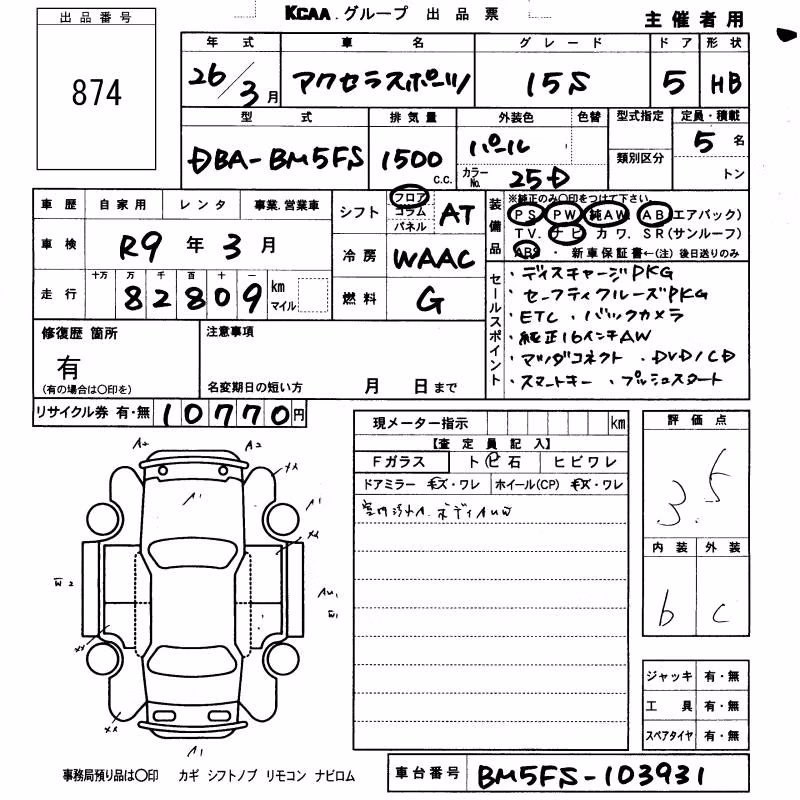 出品番号
874
KCAA.グループ 出品票
主催者用
年式 車名 グレード ドア 形状
26/3月 アクセラスポーツ 15S 5 HB
型式 排気量 外装色 色替 型式指定 定員・積載
DBA-BM5FS 1500 c.c. パール 5名
カラーNo. 25D 類別区分 トン
車歴 自家用 レンタ 事業.営業車
シフト フロア コラム パネル AT
装備品
※純正のみ〇印をつけて下さい。
PS PW 純AW AB エアバック)
TV. ナビ カワ. SR(サンルーフ)
ABS ・ 新車保証書←(注)後日送りのみ
車検 R9年3月
冷房 WAAC
走行 十万 万 千 百 十 一 km マイル
82809
燃料 G
セールスポイント
・ディスチャージPKG
・セーフティクルーズPKG
・ETC ・バックカメラ
・純正16インチAW
・マツダコネクト ・DVD/CD
・スマートキー ・プッシュスタート
修復歴 箇所
有
(有の場合は〇印を)
注意事項
名変期日の短い方 月 日まで
リサイクル券 有・無 10770円
現メーター指示 km
【査定員記入】
Fガラス トビ石 ヒビワレ
ドアミラー キズ・ワレ ホイール(CP) キズ・ワレ
評価点
3.5
内装 外装
b c
A2 A2
XX
A1 A1
XX
W2
AU1
W1
XX
XX
A1
ジャッキ 有・無
工具 有・無
スペアタイヤ 有・無
事務局預り品は〇印 カギ シフトノブ リモコン ナビロム
車台番号 BM5FS-103931